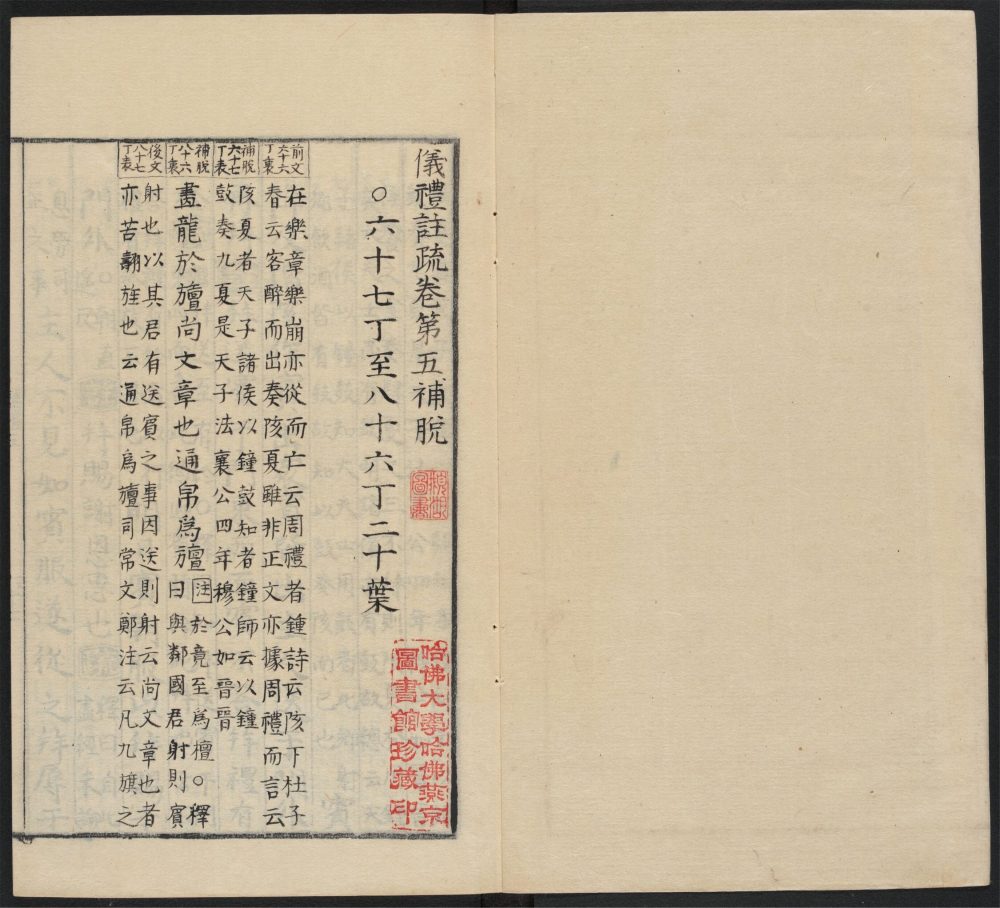 儀禮註疏卷第五補脫
○六十七丁至八十六丁二十葉
前文
六十六
丁裏
在樂章樂崩亦從而亡云周禮者鍾詩云陔下杜子
春云客醉而出奏陔夏雖非正文亦據周禮而言云
補脫
六十七
丁表
陔夏者天子諸侯以鐘鼓知者鐘師云以鐘
鼓奏九夏是天子法襄公四年穆公如晉晉
補脫
八十六
丁裏
畫龍於旜尚文章也通帛爲旜
注於竟至爲檀○釋
曰與鄰國君射則賓
後文
八十七
丁表
射也以其君有送賓之事因送則射云尚文章也者
亦苦翿旌也云通帛爲旜司常文鄭注云凡九旗之
圖書
哈佛大學哈佛燕京
圖書館珍藏印